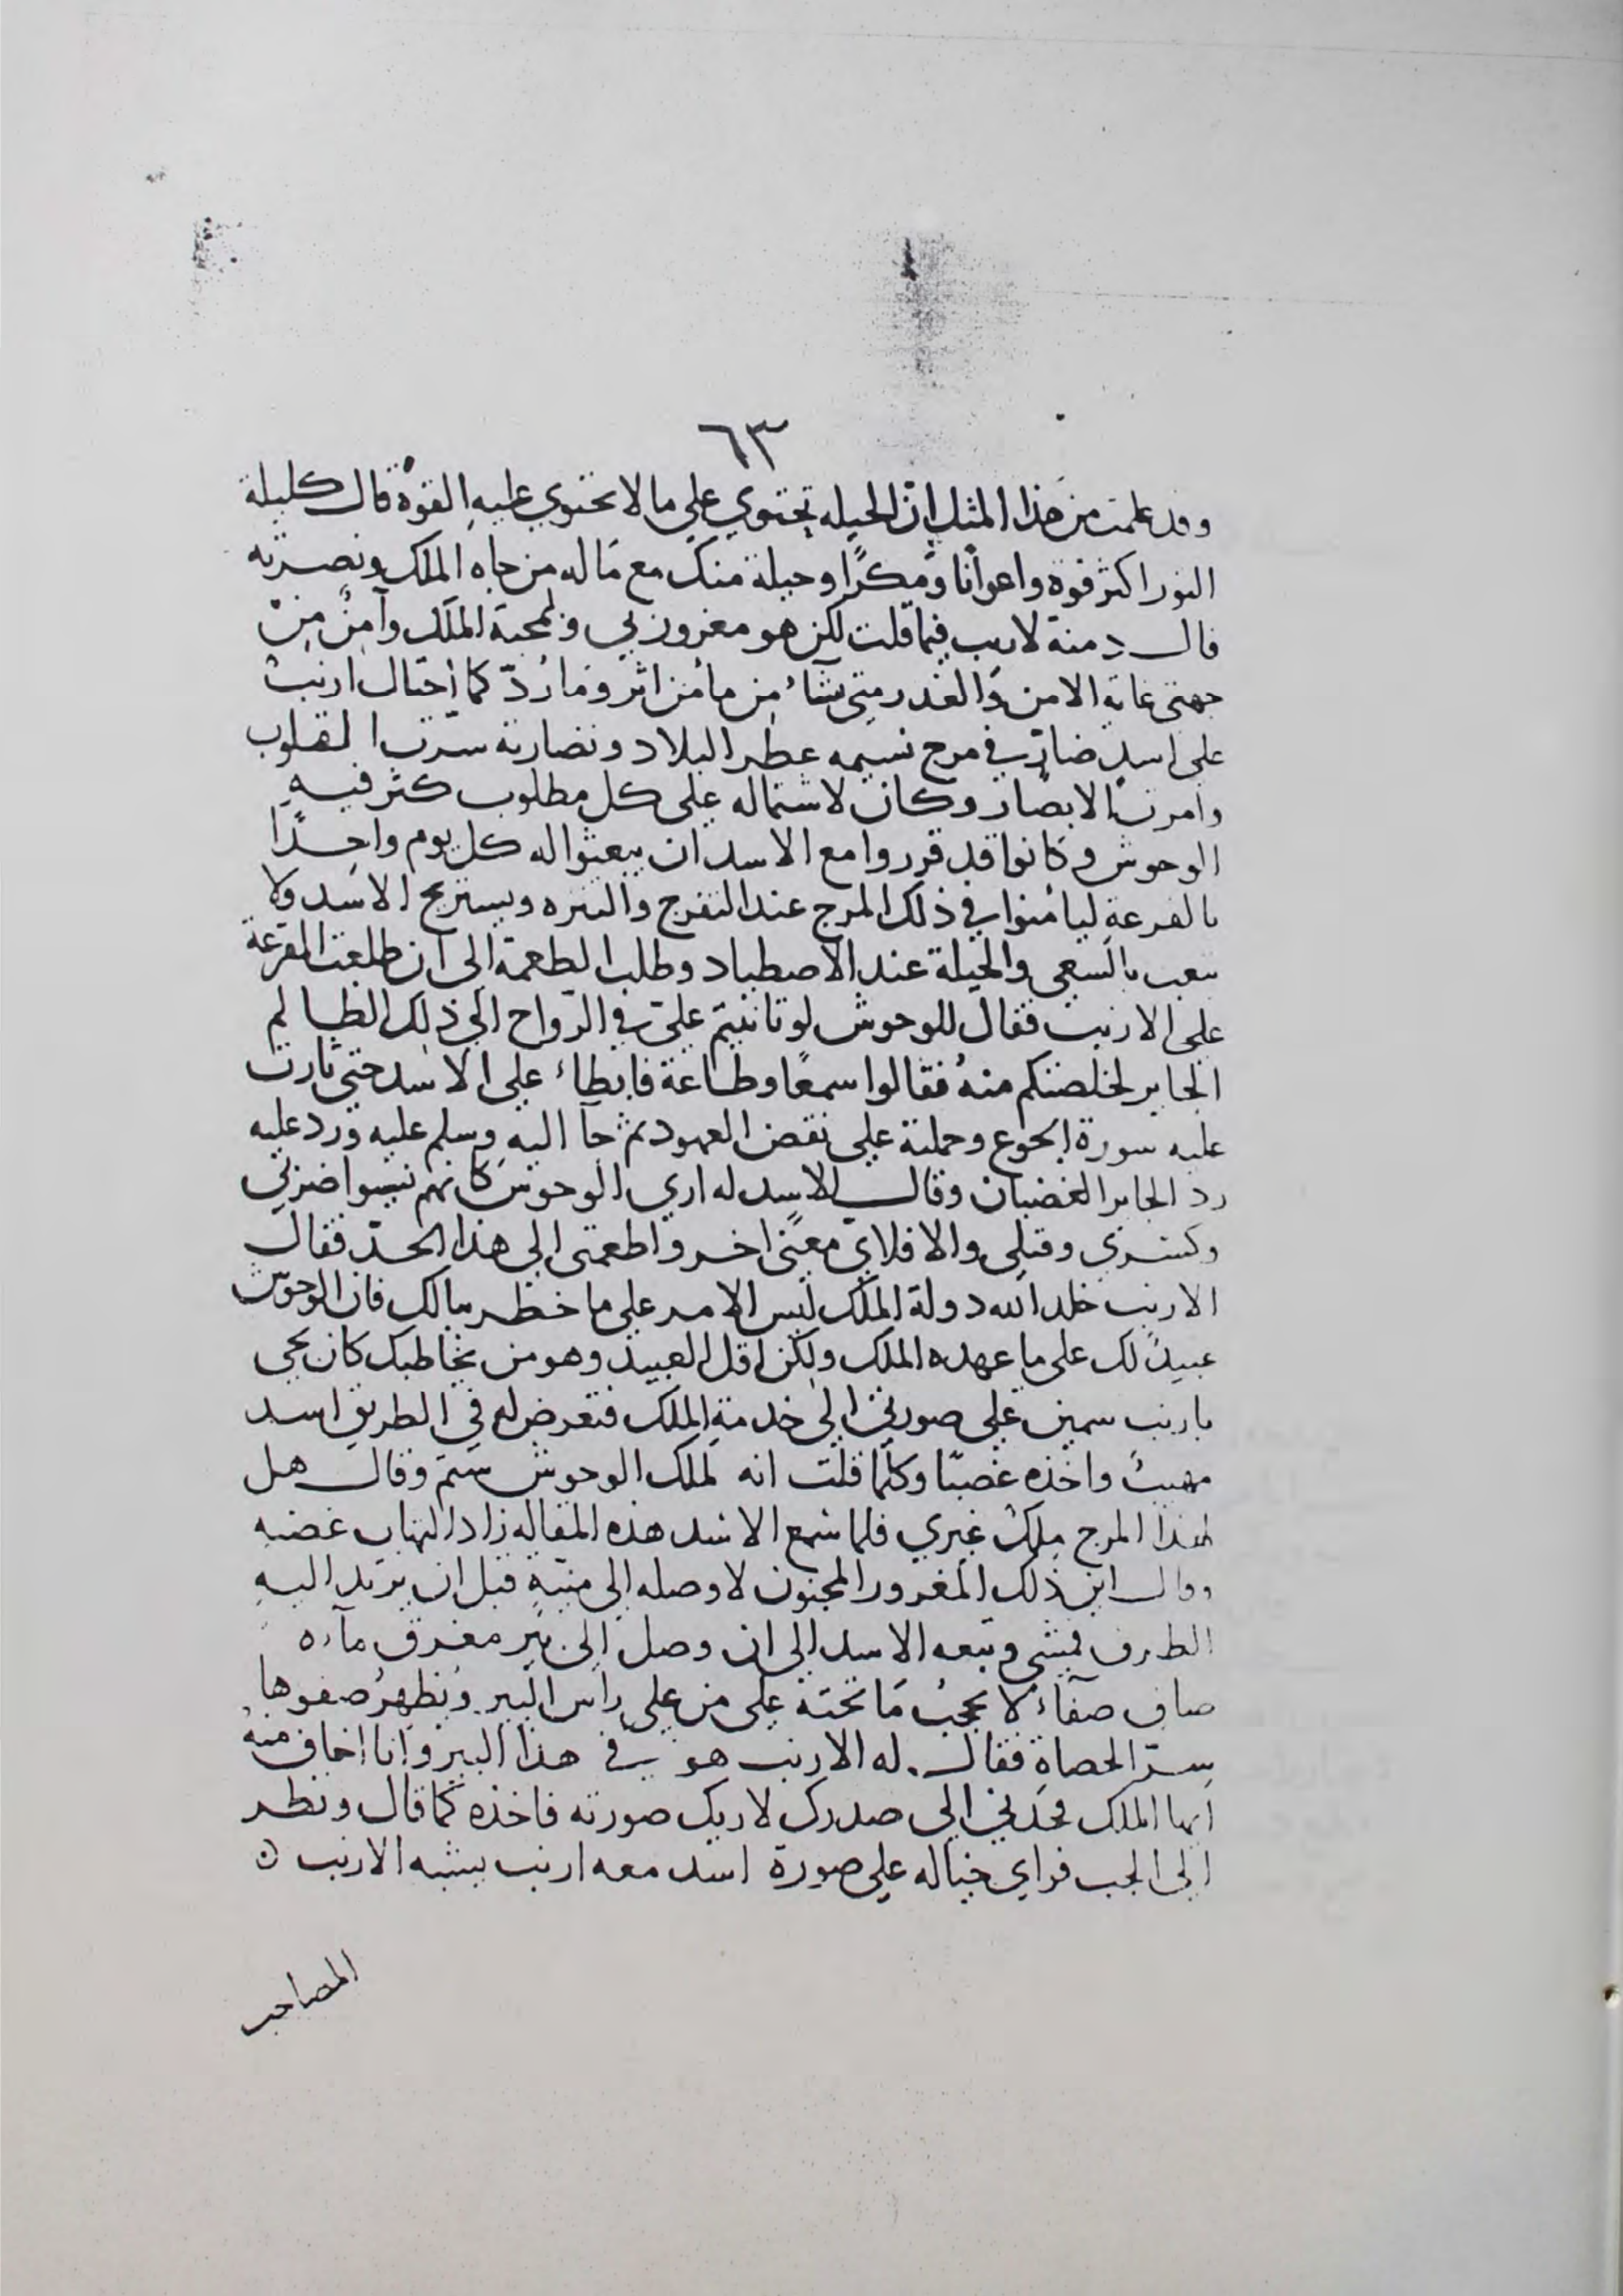 ٦٣
وقد علمت من هذا المثل ان الحيله تحتوي علي ما لا تحتوي عليه القوة قال كليلة
الثور اكثر قوة واعوانا ومكرًا وحيلة منك مع ما له من جاه الملك ونصرته
قال دمنة لا ريب فيما قلت لكن هو مغرور بي وبمحبة الملك وآمن من
جهتي غاية الامن والغدر متي شاء من مأمن اثر وما ردّ كما احتال ارنب
على اسد ضارٍ في مرج نسيمه عطر البلاد ونضارته سرّت القلوب
وامرت الابصار وكان لاشتماله على كل مطلوب كثر فيه
الوحوش وكانوا قد قرروا مع الاسد ان يبعثوا له كل يوم واحدًا
بالقرعة ليأمنوا في ذلك المرج عند التفرج والتنزه ويستريح الاسد ولا
يتعب بالسعي والحيلة عند الاصطياد وطلب الطعمة الى ان طلعت القرعة
على الارنب فقال للوحوش لو تانيتم عليّ في الرواح الى ذلك الظالم
الجاير لخلصتكم منهُ فقالوا سمعًا وطاعة فابطاء على الاسد حتي ثارت
عليه سورة الجوع وحملته على نقض العهود ثم جآ اليه وسلم عليه ورد عليه
رد الجاير الغضبان وقال الاسد له اري الوحوش كأنهم نسوا ضربي
وكسري وقتلي والا فلايّ معنىً اخر واطعمتى الى هذا الحدّ فقال
الارنب خلد الله دولة الملك ليس الامر على ما خطر ببالك فان الوحوش
عبيدٌ لك على ما عهده الملك ولكن اقل العبيد وهو من يخاطبك كان يجي
بارنب سمين على صورتي الى خدمة الملك فتعرض له في الطريق اسد
مهيبٌ واخذه غصبًا وكلّما قلت انه لملك الوحوش شتم وقال هل
لهذا المرج ملكٌ غيري فلما سمع الاسد هذه المقاله زاد التهاب غضبه
وقال اين ذلك المغرور المجنون لاوصله الى منيته قبل ان يرتد اليه
الطرف فمشي وتبعه الاسد الى ان وصل الى بير مغرق مآءه
صاف صفآء لا يحجب ما تحته على من على راس البير ويُظهرُ صفوها
سرّ الحصاة فقال له الارنب هو في هذا البير وانا اخاف منه
ايها الملك فخذني الى صدرك لاريك صورته فاخذه كما قال ونظر
الى الجب فراي خياله على صورة اسد معه ارنب يشبه الارنب
المصاحب